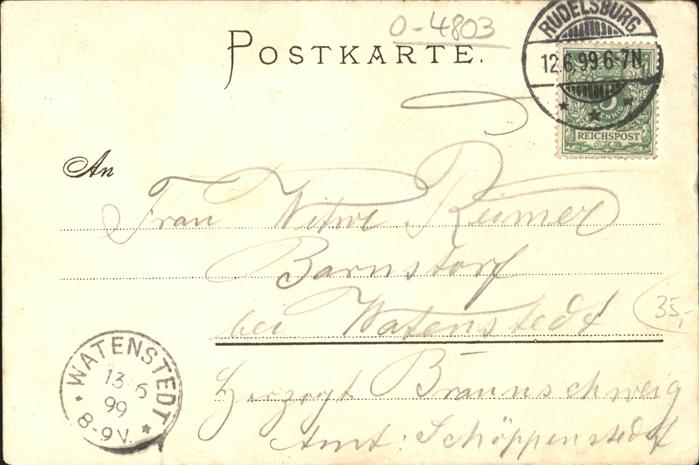 0-4803
RUDELSBURG
12.6.99.6-7N.
POSTKARTE.
5
PFENNIG
REICHSPOST
An
Frau Witwe Reimer
Barnstorf
bei Watenstedt
35,
Herzogt Braunschweig
Amt: Schöppenstedt
WATENSTEDT
13 6
99
8-9V.